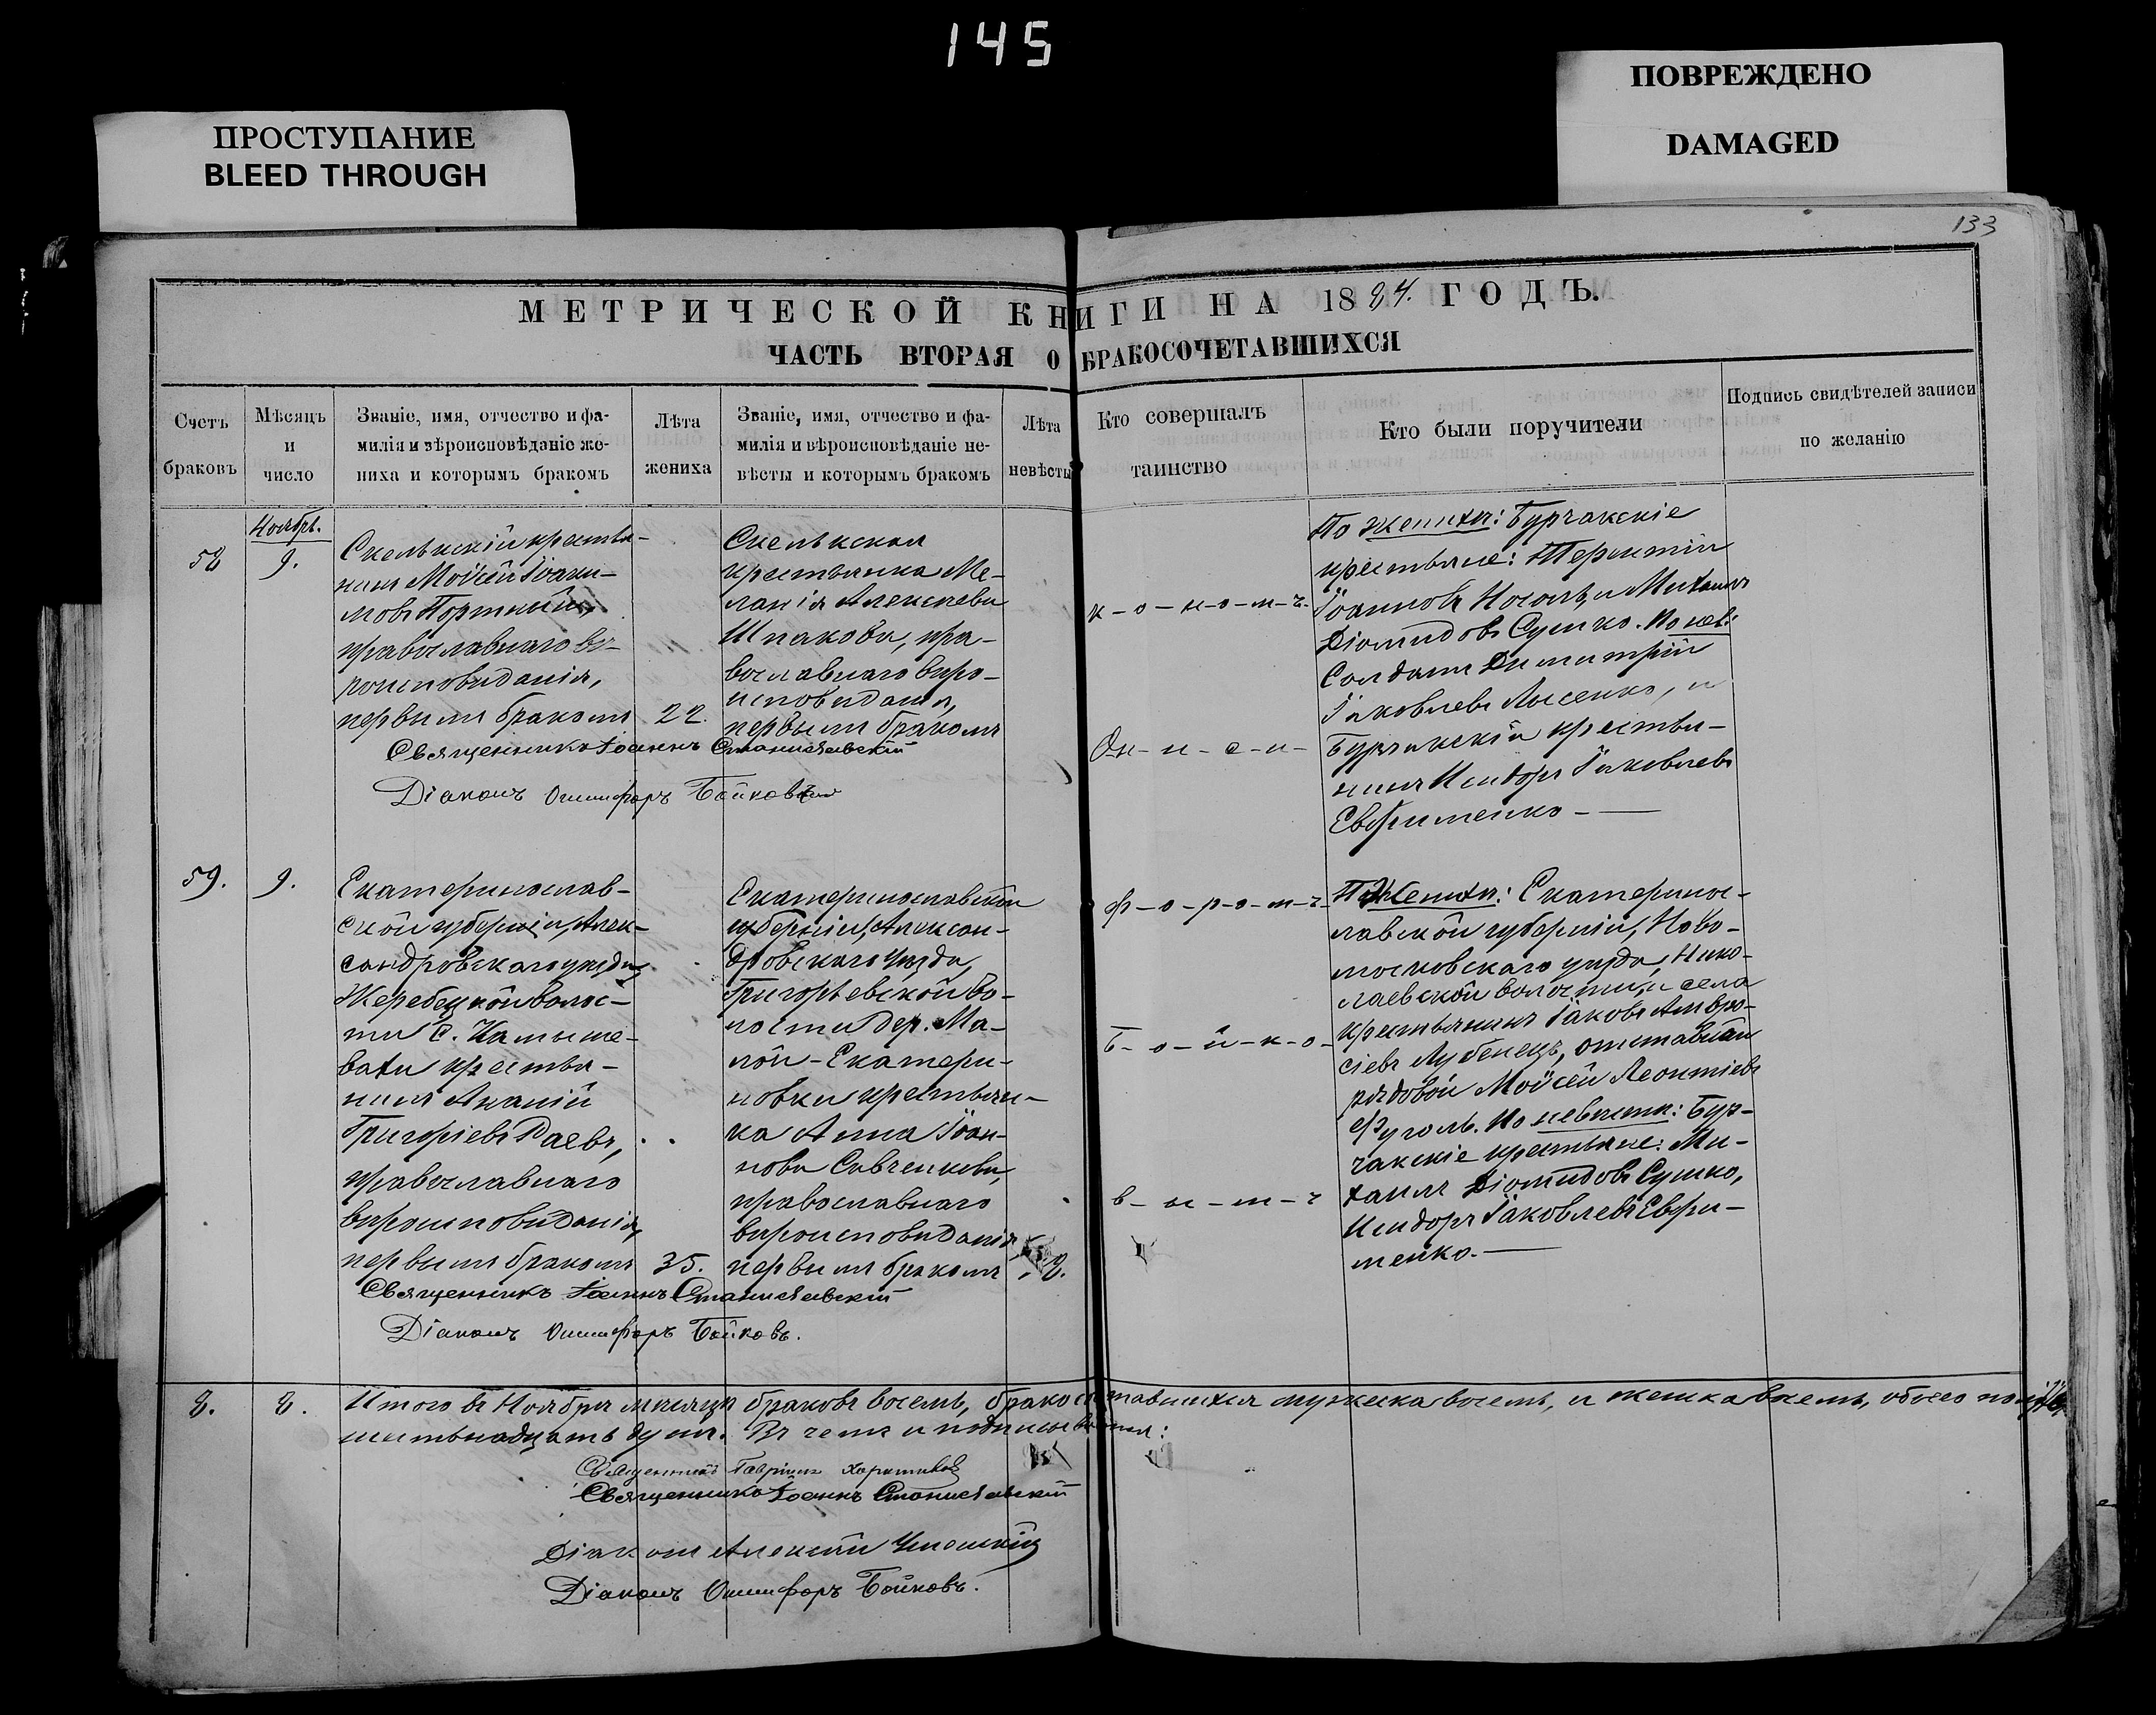 145
ПРОСТУПАНИЕ
BLEED THROUGH
ПОВРЕЖДЕНО
DAMAGED
133
МЕТРИЧЕСКОЙ КНИГИ НА 1884. ГОДЪ.
ЧАСТЬ ВТОРАЯ О БРАКОСОЧЕТАВШИХСЯ
Счетъ
браковъ
Мѣсяцъ
и
число
Званіе, имя, отчество и фа-
милія и вѣроисповѣданіе же-
ниха и которымъ бракомъ
Лѣта
жениха
Званіе, имя, отчество и фа-
милія и вѣроисповѣданіе не-
вѣсты и которымъ бракомъ
Лѣта
невѣсты
Кто совершалъ
таинство
Кто были поручители
Подпись свидѣтелей записи
по желанію
58
Ноябрь.
9.
Скельскій крестья-
нинъ Мойсей Іоаки-
мовъ
православнаго вѣ-
роисповѣданія,
первымъ бракомъ
22.
Скельская
крестьянка Ме-
ланія Алексѣева
Шпакова, пра-
вославнаго вѣро-
исповѣданія,
первымъ бракомъ
Священникъ Іоаннъ Станиславскій
Діаконъ Онисифоръ Бойковъ
к-о-н-о-м-ъ-
Он-и-с-и-
По женихѣ: Бурчакскіе
крестьяне: Терентій
Іоанновъ Коваль, и Михаилъ
Діомидовъ Сушко. По нев:
Солдатъ Димитрій
Іаковлевъ Лысенко, и
Бурчакскій крестья-
нинъ Исидоръ Іаковлевъ
Евфименко-
59.
9.
Екатеринослав-
ской губерніи, Алек-
сандровскаго уѣзда,
Жеребецкой волос-
ти С. Камыше-
вахи крестья-
нинъ Ананій
Григоріевъ Раевъ,
православнаго
вѣроисповѣданія,
первымъ бракомъ
35.
Екатеринославской
губерніи, Алексан-
дровскаго уѣзда,
Григорьевской во-
лости дер. Ма-
лой-Екатери-
новки крестьян-
ка Анна Іоан-
нова Савченкова,
православнаго
вѣроисповѣданія
первымъ бракомъ
Священникъ Іоаннъ Станиславскій
Діаконъ Онисифоръ Бойковъ.
ф-о-р-о-м-ъ-
Б-о-й-к-о-
в-ы-м-ъ
По Женихѣ: Екатеринос-
лавской губерніи, Ново-
московскаго уѣзда, Нико-
лаевской волости, и села
крестьянинъ Іаковъ Амвро-
сіевъ Лубенецъ, отставной
рядовой Мойсей Леонтіевъ
По невѣстѣ: Бур-
чакскіе крестьяне: Ми-
хаилъ Діомидовъ Сушко,
Исидоръ Іаковлевъ Евфи-
менко.-
8.
8.
Итого въ Ноябрѣ мѣсяцѣ браковъ восемь, бракосочетавшихся мужеска восемь, и женска восемь, обоего пола
шестьнадцать душъ. Въ чемъ и подписываемся:
Священникъ Гавріилъ
Священникъ Іоаннъ Станиславскій
Діаконъ Алексѣй
Діаконъ Онисифоръ Бойковъ.